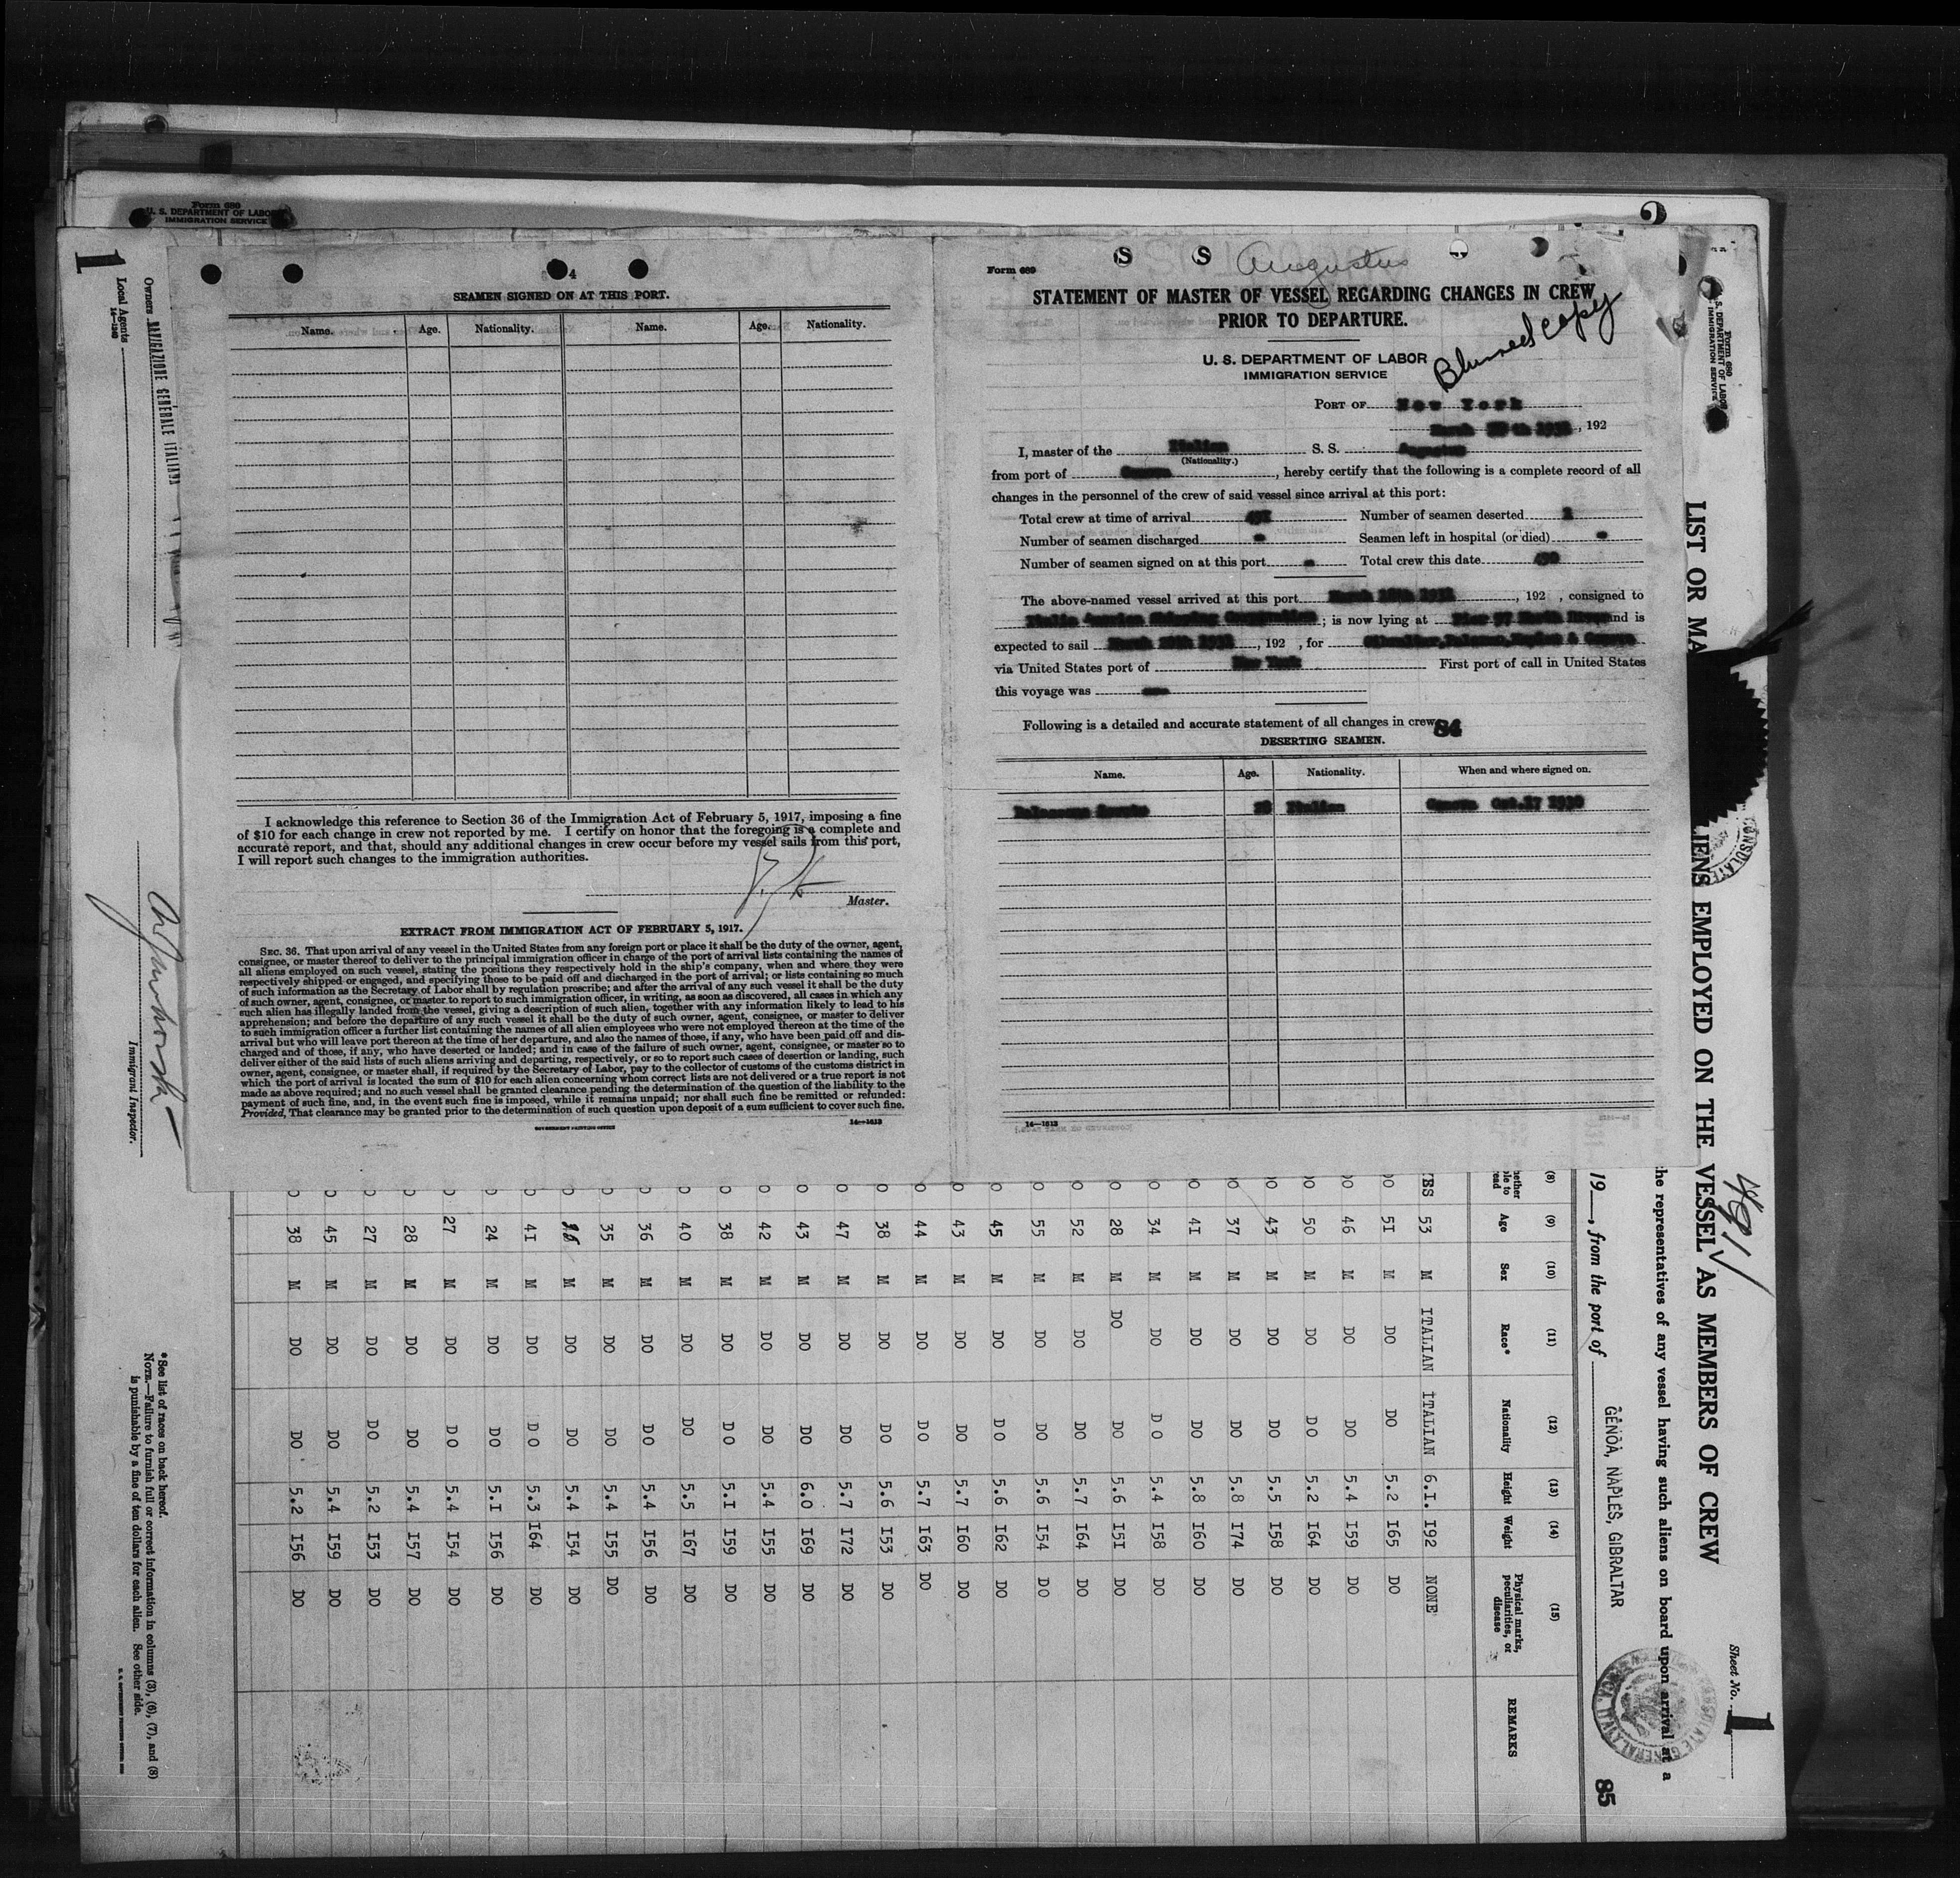 Form 680
U. S. DEPARTMENT OF LABOR
IMMIGRATION SERVICE
2
1
Owners NAVIGAZIONE GENERALE ITALIANA
Local Agents
14—1240
Immigrant Inspector.
*See list of races on back hereof.
NOTE.—Failure to furnish full or correct information in columns (3), (6), (7), and (8)
is punishable by a fine of ten dollars for each alien. See other side.
4
SEAMEN SIGNED ON AT THIS PORT.
Name. Age. Nationality. Name. Age. Nationality.
I acknowledge this reference to Section 36 of the Immigration Act of February 5, 1917, imposing a fine
of $10 for each change in crew not reported by me. I certify on honor that the foregoing is a complete and
accurate report, and that, should any additional changes in crew occur before my vessel sails from this port,
I will report such changes to the immigration authorities.
Master.
EXTRACT FROM IMMIGRATION ACT OF FEBRUARY 5, 1917.
SEC. 36. That upon arrival of any vessel in the United States from any foreign port or place it shall be the duty of the owner, agent,
consignee, or master thereof to deliver to the principal immigration officer in charge of the port of arrival lists containing the names of
all aliens employed on such vessel, stating the positions they respectively hold in the ship's company, when and where they were
respectively shipped or engaged, and specifying those to be paid off and discharged in the port of arrival; or lists containing so much
of such information as the Secretary of Labor shall by regulation prescribe; and after the arrival of any such vessel it shall be the duty
of such owner, agent, consignee, or master to report to such immigration officer, in writing, as soon as discovered, all cases in which any
such alien has illegally landed from the vessel, giving a description of such alien, together with any information likely to lead to his
apprehension; and before the departure of any such vessel it shall be the duty of such owner, agent, consignee, or master to deliver
to such immigration officer a further list containing the names of all alien employees who were not employed thereon at the time of the
arrival but who will leave port thereon at the time of her departure, and also the names of those, if any, who have been paid off and dis-
charged and of those, if any, who have deserted or landed; and in case of the failure of such owner, agent, consignee, or master so to
deliver either of the said lists of such aliens arriving and departing, respectively, or so to report such cases of desertion or landing, such
owner, agent, consignee, or master shall, if required by the Secretary of Labor, pay to the collector of customs of the customs district in
which the port of arrival is located the sum of $10 for each alien concerning whom correct lists are not delivered or a true report is not
made as above required; and no such vessel shall be granted clearance pending the determination of the question of the liability to the
payment of such fine, and, in the event such fine is imposed, while it remains unpaid; nor shall such fine be remitted or refunded:
Provided, That clearance may be granted prior to the determination of such question upon deposit of a sum sufficient to cover such fine.
GOVERNMENT PRINTING OFFICE 14—1613
Form 689
S S Augustus
STATEMENT OF MASTER OF VESSEL REGARDING CHANGES IN CREW
PRIOR TO DEPARTURE.
Blurred copy
U. S. DEPARTMENT OF LABOR
IMMIGRATION SERVICE
PORT OF New York
March th 1931, 192
I, master of the Italian S. S. Augustus
(Nationality.)
from port of Genova, hereby certify that the following is a complete record of all
changes in the personnel of the crew of said vessel since arrival at this port:
Total crew at time of arrival 491 Number of seamen deserted 1
Number of seamen discharged - Seamen left in hospital (or died) -
Number of seamen signed on at this port - Total crew this date 490
The above-named vessel arrived at this port March 1931, 192 , consigned to
Italia America Shipping Corporation; is now lying at Pier 97 North River and is
expected to sail March 1931, 192 , for Gibraltar, Palermo, Naples & Genova
via United States port of New York First port of call in United States
this voyage was
Following is a detailed and accurate statement of all changes in crew
84
DESERTING SEAMEN.
Name. Age. Nationality. When and where signed on.
28 Italian Genova Oct.17 1930
14—1613
Form 680
S. DEPARTMENT OF LABOR
IMMIGRATION SERVICE
LIST OR MA
LIENS EMPLOYED ON THE VESSEL AS MEMBERS OF CREW
491
CONSULATE
Sheet No. 1
the representatives of any vessel having such aliens on board upon arrival at a
19__, from the port of GENOA, NAPLES, GIBRALTAR
85
(8) (9) (10) (11) (12) (13) (14) (15)
Age Sex Race* Nationality Height Weight Physical marks, peculiarities, or disease REMARKS
53 M ITALIAN ITALIAN 6.I. I92 NONE
5I M DO DO 5.2 I65 DO
46 M DO DO 5.4 I59 DO
50 M DO DO 5.2 I64 DO
43 M DO DO 5.5 I58 DO
37 M DO DO 5.8 I74 DO
4I M DO DO 5.8 I60 DO
34 M DO DO 5.4 I58 DO
28 M DO DO 5.6 I5I DO
52 M DO DO 5.7 I64 DO
55 M DO DO 5.6 I54 DO
45 M DO DO 5.6 I62 DO
43 M DO DO 5.7 I60 DO
44 M DO DO 5.7 I63 DO
38 M DO DO 5.6 I53 DO
47 M DO DO 5.7 I72 DO
43 M DO DO 6.0 I69 DO
42 M DO DO 5.4 I55 DO
38 M DO DO 5.I I59 DO
40 M DO DO 5.5 I67 DO
36 M DO DO 5.4 I56 DO
35 M DO DO 5.4 I55 DO
M DO DO 5.4 I54 DO
4I M DO DO 5.3 I64 DO
24 M DO DO 5.I I56 DO
27 M DO DO 5.4 I54 DO
28 M DO DO 5.4 I57 DO
27 M DO DO 5.2 I53 DO
45 M DO DO 5.4 I59 DO
38 M DO DO 5.2 I56 DO